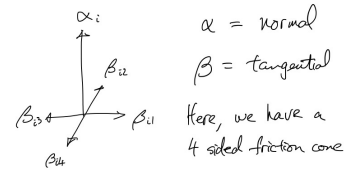 αᵢ
βᵢ₂
βᵢ₃
βᵢ₁
βᵢ₄
α = normal
β = tangential
Here, we have a
4 sided friction cone